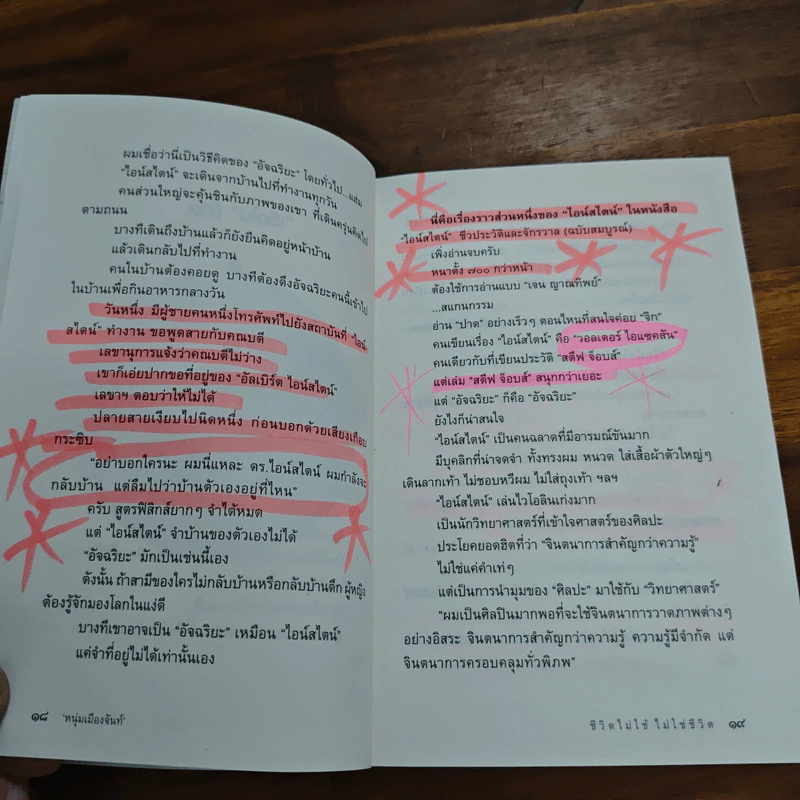 ผมเชื่อว่านี่เป็นวิธีคิดของ “อัจฉริยะ” โดยทั่วไป...แฮ่ม
“ไอน์สไตน์” จะเดินจากบ้านไปที่ทำงานทุกวัน
คนส่วนใหญ่จะคุ้นชินกับภาพของเขา ที่เดินครุ่นคิดไป
ตามถนน
บางทีเดินถึงบ้านแล้วก็ยังยืนคิดอยู่หน้าบ้าน
แล้วเดินกลับไปที่ทำงาน
คนในบ้านต้องคอยดู บางทีต้องดึงอัจฉริยะคนนี้เข้าไป
ในบ้านเพื่อกินอาหารกลางวัน
วันหนึ่ง มีผู้ชายคนหนึ่งโทรศัพท์ไปยังสถาบันที่ “ไอน์-
สไตน์” ทำงาน ขอพูดสายกับคณบดี
เลขานุการแจ้งว่าคณบดีไม่ว่าง
เขาก็เอ่ยปากขอที่อยู่ของ “อัลเบิร์ต ไอน์สไตน์”
เลขาฯ ตอบว่าให้ไม่ได้
ปลายสายเงียบไปนิดหนึ่ง ก่อนบอกด้วยเสียงเกือบ
กระซิบ
“อย่าบอกใครนะ ผมนี่แหละ ดร.ไอน์สไตน์ ผมกำลังจะ
กลับบ้าน แต่ลืมไปว่าบ้านตัวเองอยู่ที่ไหน”
ครับ สูตรฟิสิกส์ยากๆ จำได้หมด
แต่ “ไอน์สไตน์” จำบ้านของตัวเองไม่ได้
“อัจฉริยะ” มักเป็นเช่นนี้เอง
ดังนั้น ถ้าสามีของใครไม่กลับบ้านหรือกลับบ้านดึก ผู้หญิง
ต้องรู้จักมองโลกในแง่ดี
บางทีเขาอาจเป็น “อัจฉริยะ” เหมือน “ไอน์สไตน์”
แค่จำที่อยู่ไม่ได้เท่านั้นเอง
๑๘ ‘หนุ่มเมืองจันท์’
นี่คือเรื่องราวส่วนหนึ่งของ “ไอน์สไตน์” ในหนังสือ
“ไอน์สไตน์” ชีวประวัติและจักรวาล (ฉบับสมบูรณ์)
เพิ่งอ่านจบครับ
หนาตั้ง ๗๐๐ กว่าหน้า
ต้องใช้การอ่านแบบ “เจน ญาณทิพย์”
...สแกนกรรม
อ่าน “ปาด” อย่างเร็วๆ ตอนไหนที่สนใจค่อย “จิก”
คนเขียนเรื่อง “ไอน์สไตน์” คือ “วอลเตอร์ ไอแซคสัน”
คนเดียวกับที่เขียนประวัติ “สตีฟ จ็อบส์”
แต่เล่ม “สตีฟ จ็อบส์” สนุกกว่าเยอะ
แต่ “อัจฉริยะ” ก็คือ “อัจฉริยะ”
ยังไงก็น่าสนใจ
“ไอน์สไตน์” เป็นคนฉลาดที่มีอารมณ์ขันมาก
มีบุคลิกที่น่าจดจำ ทั้งทรงผม หนวด ใส่เสื้อผ้าตัวใหญ่ๆ
เดินลากเท้า ไม่ชอบหวีผม ไม่ใส่ถุงเท้า ฯลฯ
“ไอน์สไตน์” เล่นไวโอลินเก่งมาก
เป็นนักวิทยาศาสตร์ที่เข้าใจศาสตร์ของศิลปะ
ประโยคยอดฮิตที่ว่า “จินตนาการสำคัญกว่าความรู้”
ไม่ใช่แค่คำเท่ๆ
แต่เป็นการนำมุมของ “ศิลปะ” มาใช้กับ “วิทยาศาสตร์”
“ผมเป็นศิลปินมากพอที่จะใช้จินตนาการวาดภาพต่างๆ
อย่างอิสระ จินตนาการสำคัญกว่าความรู้ ความรู้มีจำกัด แต่
จินตนาการครอบคลุมทั่วพิภพ”
ชีวิตไม่ใช้ ไม่ใช่ชีวิต ๑๙